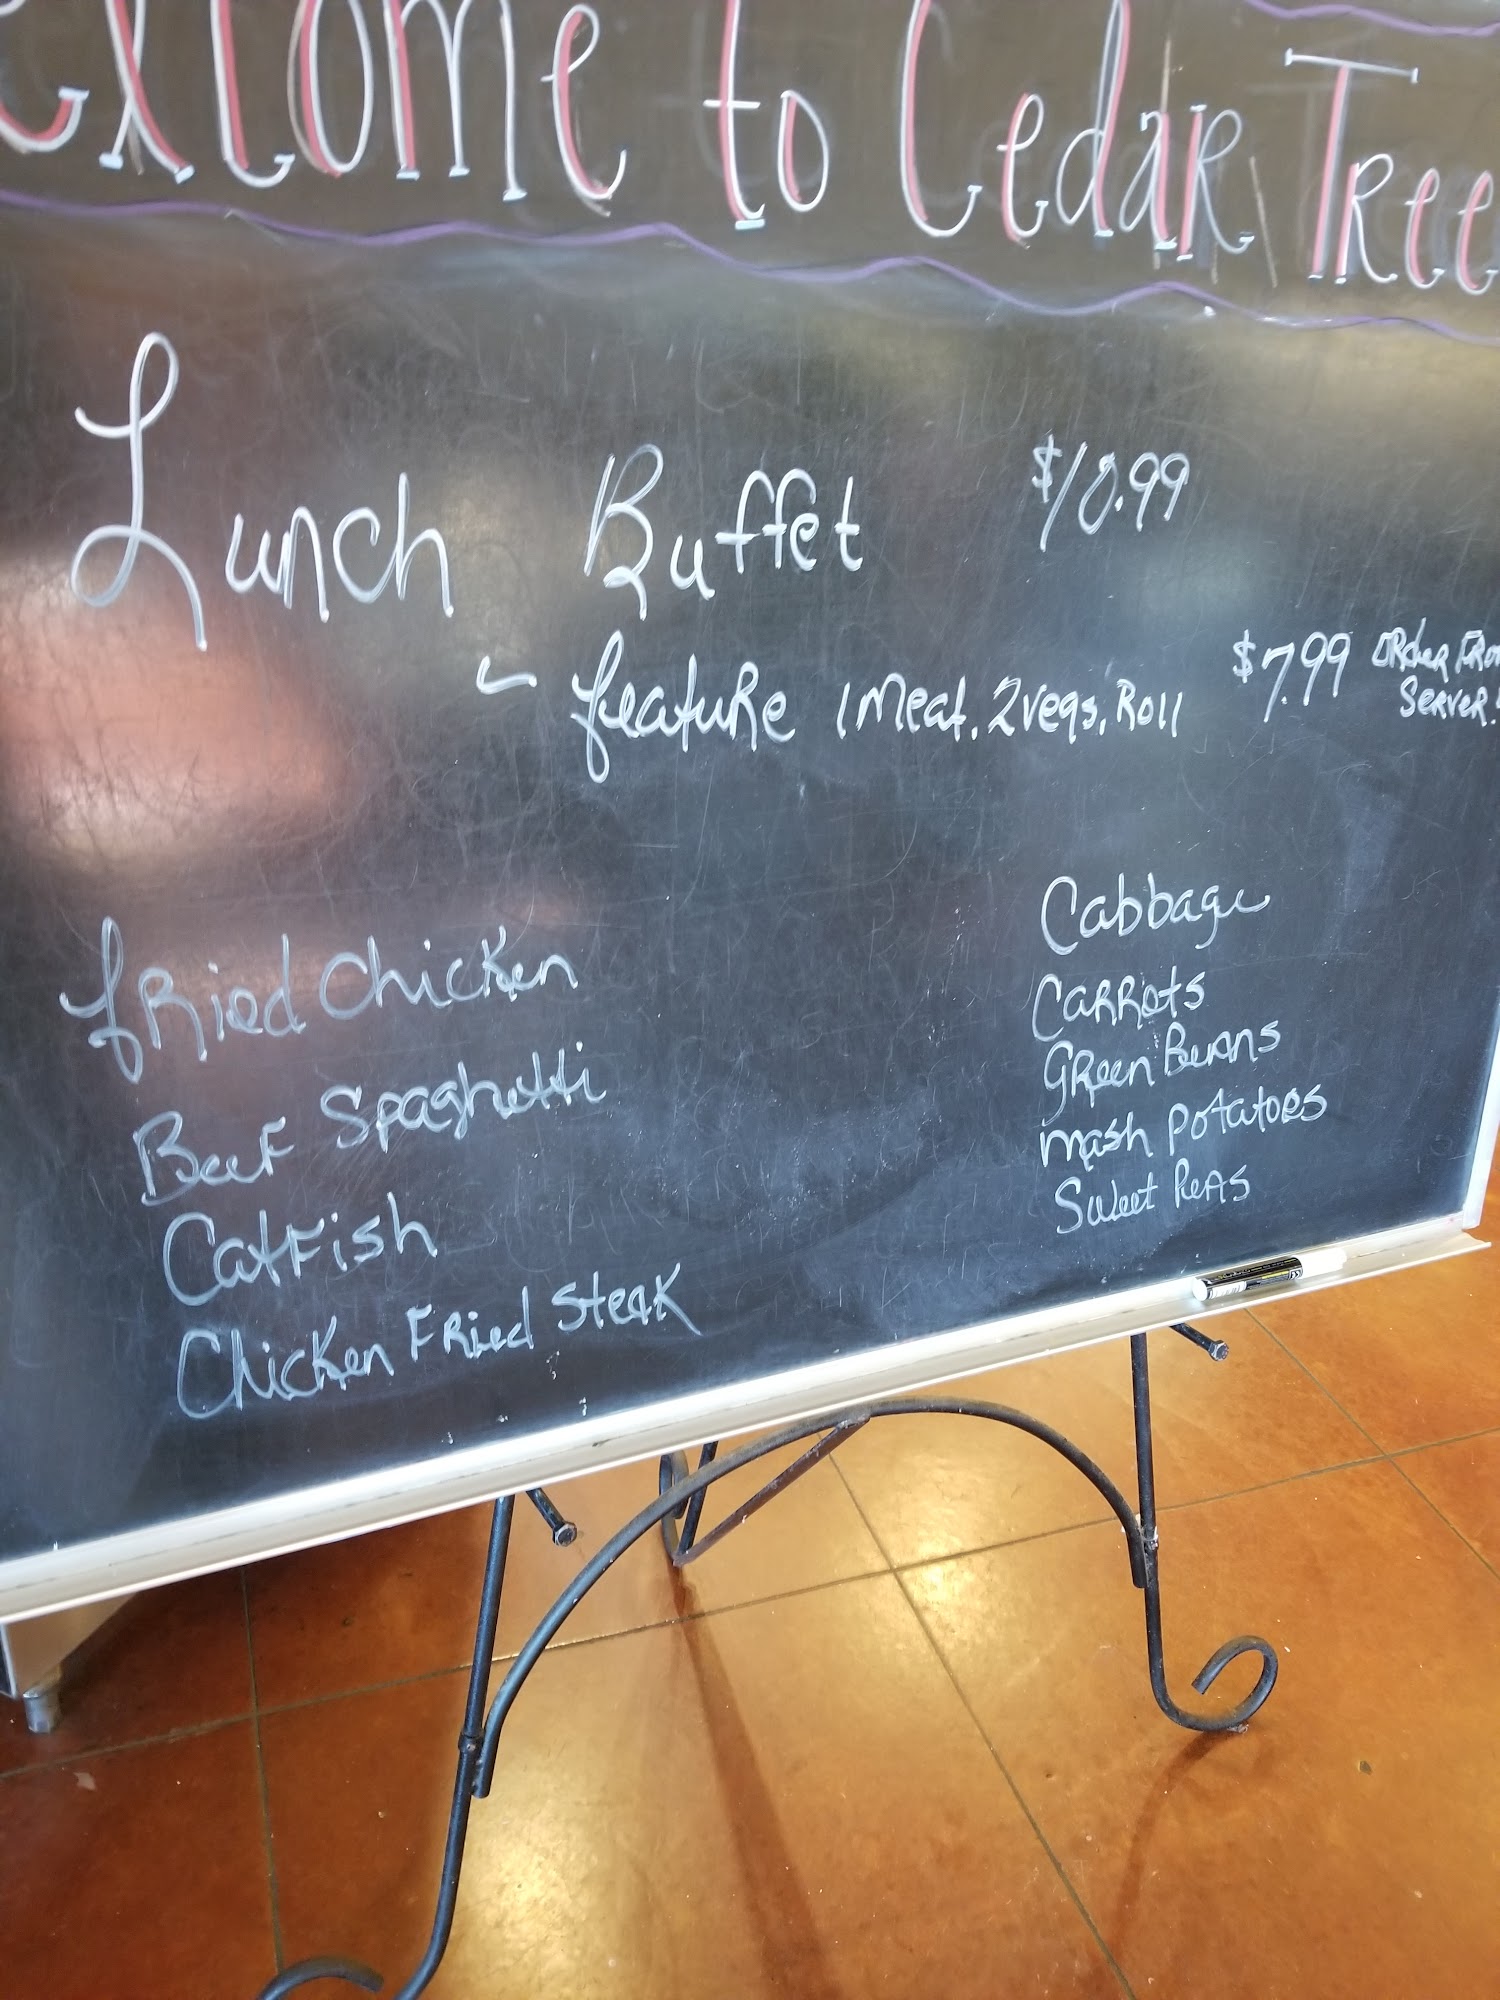 elcome to Cedar Tree
Lunch Buffet $10.99
~ feature 1 Meat, 2 vegs, Roll $7.99 Order From
Server!
Fried Chicken
Beef Spaghetti
Catfish
Chicken Fried Steak
Cabbage
Carrots
Green Beans
Mash Potatoes
Sweet Peas